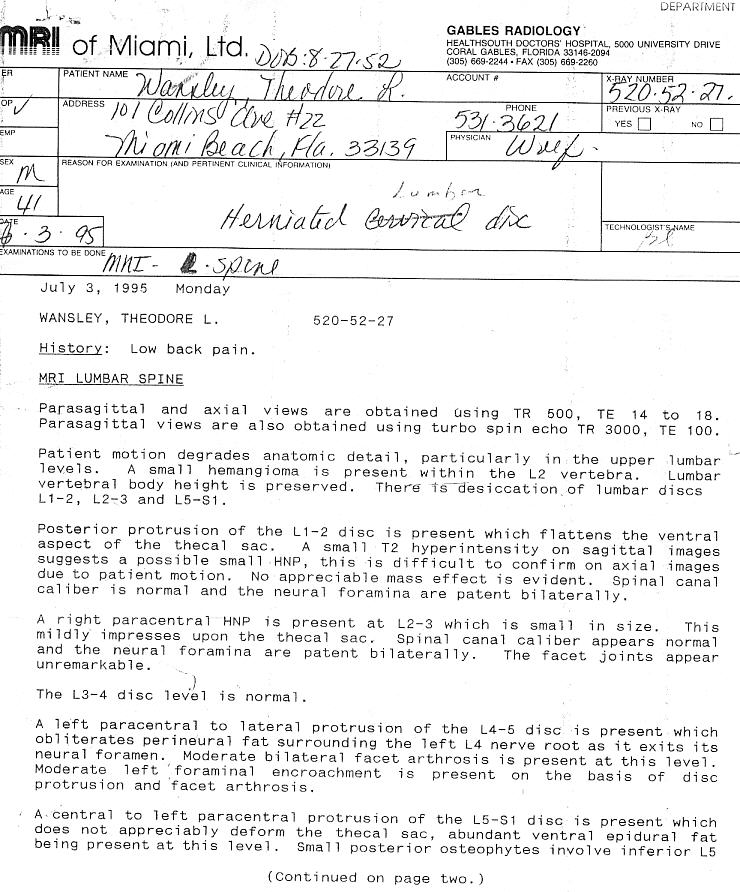 DEPARTMENT
MRI of Miami, Ltd.
DOB: 8-27-52
GABLES RADIOLOGY
HEALTHSOUTH DOCTORS' HOSPITAL, 5000 UNIVERSITY DRIVE
CORAL GABLES, FLORIDA 33146-2094
(305) 669-2244 • FAX (305) 669-2260
ER
PATIENT NAME Wansley, Theodore L.
ACCOUNT #
X-RAY NUMBER
520.52.27.
OP ✓
ADDRESS 101 Collins Ave #22
Miami Beach, Fla. 33139
PHONE
531.3621
PREVIOUS X-RAY
YES NO
EMP
PHYSICIAN
SEX
M
REASON FOR EXAMINATION (AND PERTINENT CLINICAL INFORMATION)
Lumbar
Herniated cervical disc
AGE
41
DATE
3 . 95
TECHNOLOGIST'S NAME
EXAMINATIONS TO BE DONE MRI- L. Spine
July 3, 1995 Monday
WANSLEY, THEODORE L. 520-52-27
History: Low back pain.
MRI LUMBAR SPINE
Parasagittal and axial views are obtained using TR 500, TE 14 to 18.
Parasagittal views are also obtained using turbo spin echo TR 3000, TE 100.
Patient motion degrades anatomic detail, particularly in the upper lumbar
levels. A small hemangioma is present within the L2 vertebra. Lumbar
vertebral body height is preserved. There is desiccation of lumbar discs
L1-2, L2-3 and L5-S1.
Posterior protrusion of the L1-2 disc is present which flattens the ventral
aspect of the thecal sac. A small T2 hyperintensity on sagittal images
suggests a possible small HNP, this is difficult to confirm on axial images
due to patient motion. No appreciable mass effect is evident. Spinal canal
caliber is normal and the neural foramina are patent bilaterally.
A right paracentral HNP is present at L2-3 which is small in size. This
mildly impresses upon the thecal sac. Spinal canal caliber appears normal
and the neural foramina are patent bilaterally. The facet joints appear
unremarkable.
The L3-4 disc level is normal.
A left paracentral to lateral protrusion of the L4-5 disc is present which
obliterates perineural fat surrounding the left L4 nerve root as it exits its
neural foramen. Moderate bilateral facet arthrosis is present at this level.
Moderate left foraminal encroachment is present on the basis of disc
protrusion and facet arthrosis.
A central to left paracentral protrusion of the L5-S1 disc is present which
does not appreciably deform the thecal sac, abundant ventral epidural fat
being present at this level. Small posterior osteophytes involve inferior L5
(Continued on page two.)